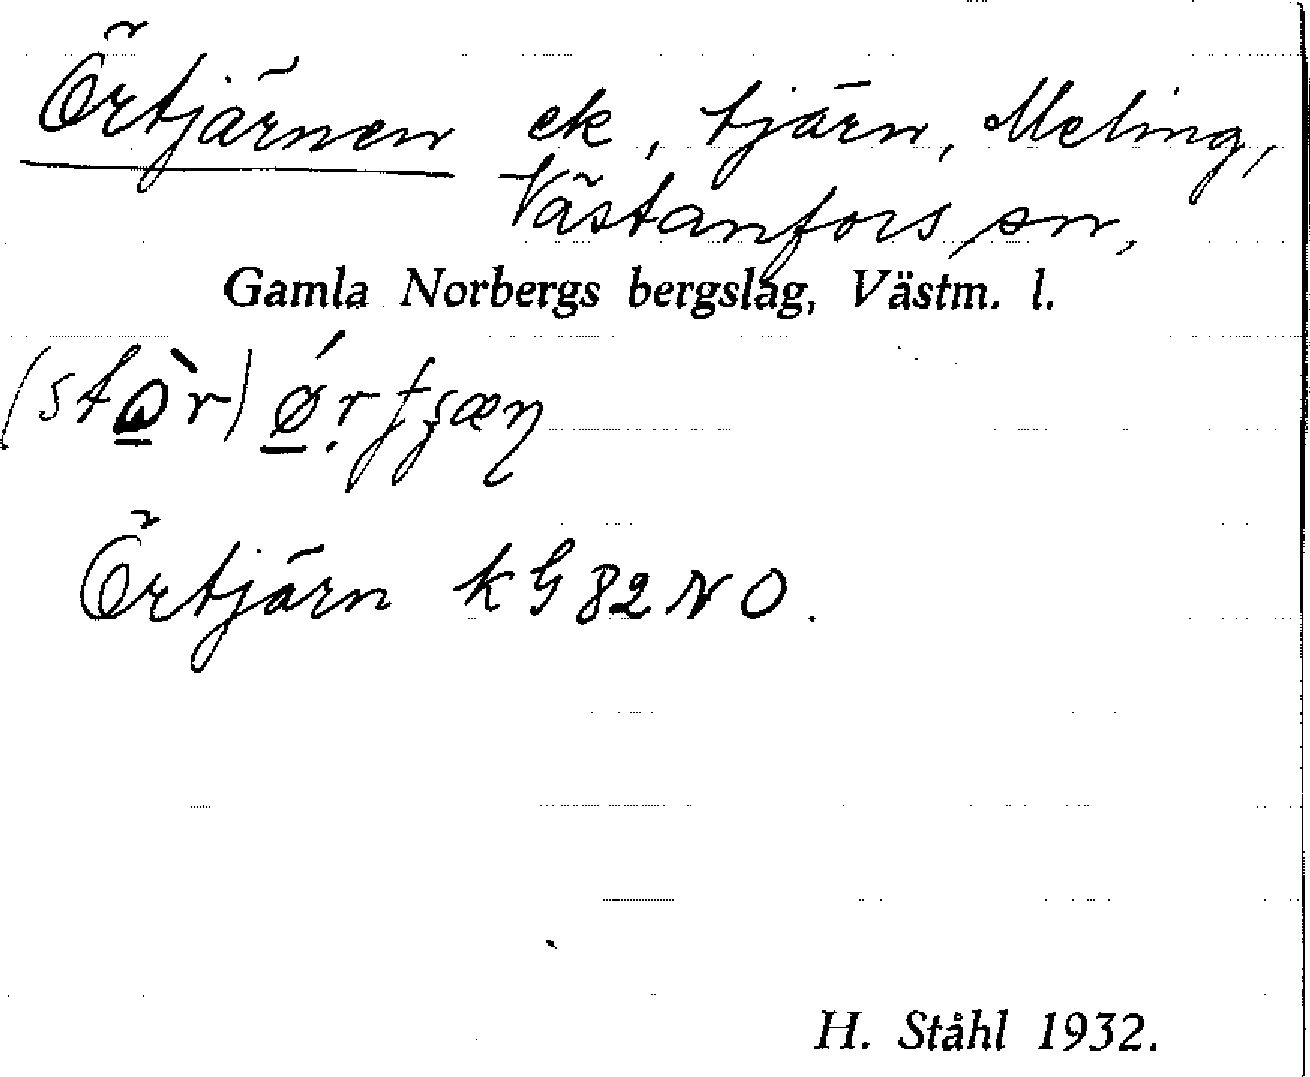 Örtjärnen ek, tjärn, Meling,
Västanfors sn,
Gamla Norbergs bergslag, Västm. l.
(stò̲r) ǿ̲ṛtʒæn
Örtjärn kG82NO.
H. Ståhl 1932.